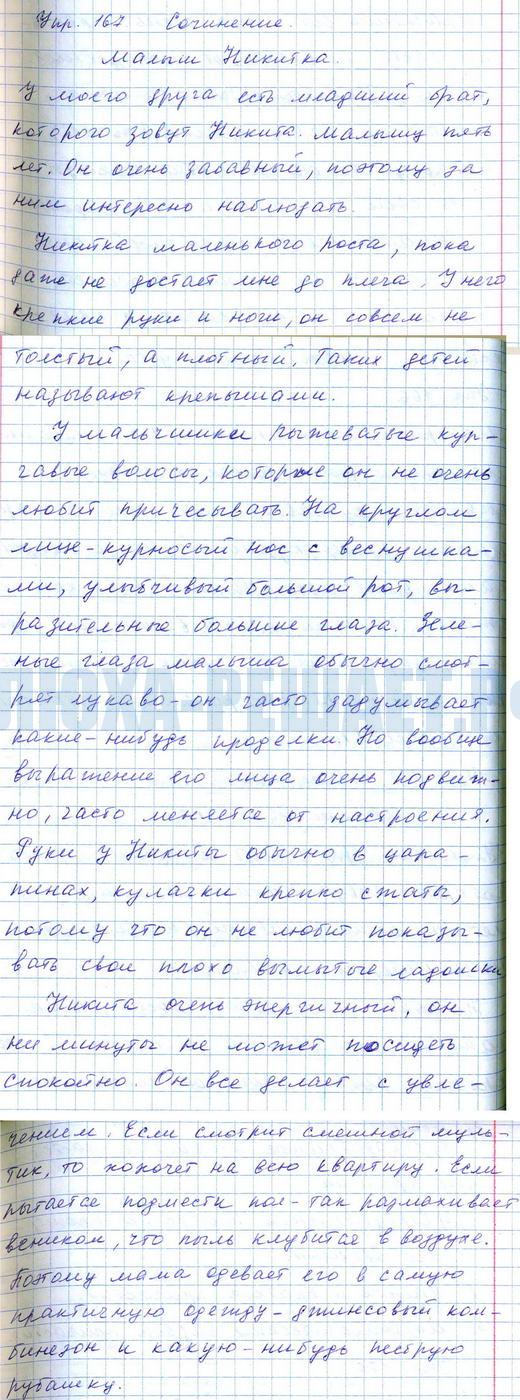 Упр. 167 Сочинение.
Малыш Никитка.
У моего друга есть младший брат,
которого зовут Никита. Малышу пять
лет. Он очень забавный, поэтому за
ним интересно наблюдать.
Никитка маленького роста, пока
даже не достает мне до плеча. У него
крепкие руки и ноги, он совсем не
толстый, а плотный. Таких детей
называют крепышами.
У мальчишки рыжеватые кур-
чавые волосы, которые он не очень
любит причесывать. На круглом
лице - курносый нос с веснушка-
ми, улыбчивый большой рот, вы-
разительные большие глаза. Зеле-
ные глаза малыша обычно смот-
рят лукаво - он часто задумывает
какие-нибудь проделки. Но вообще
выражение его лица очень подвиж-
но, часто меняется от настроения.
Руки у Никиты обычно в цара-
пинах, кулачки крепко сжаты,
потому что он не любит показы-
вать свои плохо вымытые ладошки
Никита очень энергичный, он
ни минуты не может посидеть
спокойно. Он все делает с увле-
чением. Если смотрит смешной муль-
тик, то хохочет на всю квартиру. Если
пытается подмести пол - так размахивает
веником, что пыль клубится в воздухе.
Поэтому мама одевает его в самую
практичную одежду - джинсовый ком-
бинезон и какую-нибудь пеструю
рубашку.